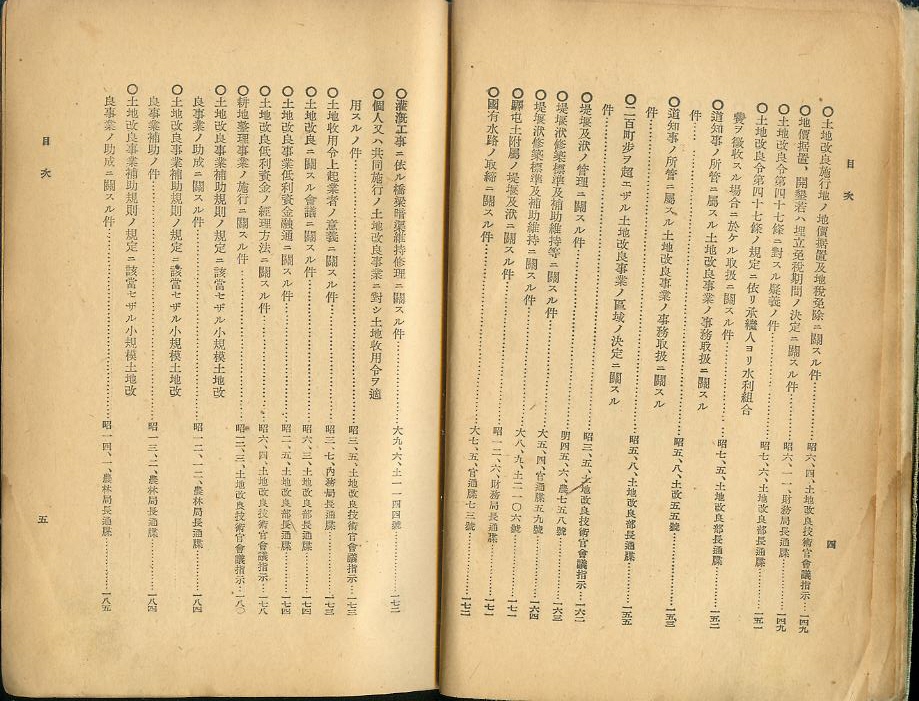 目次
四
○土地改良施行地ノ地價据置及地稅免除ニ關スル件…………昭六、四、土地改良技術官會議指示…一四九
○地價据置、開墾若ハ埋立免稅期間ノ決定ニ關スル件…………昭六、一一、財務局長通牒…………一四九
○土地改良令第四十七條ニ對スル疑義ノ件…………昭七、六、土地改良部長通牒…………一五一
○土地改良令第四十七條ノ規定ニ依リ承繼人ヨリ水利組合
費ヲ徵收スル場合ニ於ケル取扱ニ關スル件…………昭七、五、土地改良部長通牒…………一五二
○道知事ノ所管ニ屬スル土地改良事業ノ事務取扱ニ關スル
件…………昭五、八、土改五五號…………一五三
○道知事ノ所管ニ屬スル土地改良事業ノ事務取扱ニ關スル
件…………昭五、八、土地改良部長通牒…………一五五
○二百町步ヲ超エザル土地改良事業ノ區域ノ決定ニ關スル
件…………昭三、五、土地改良技術官會議指示…一六二
○堤堰及洑ノ管理ニ關スル件…………明四五、六、農七五八號…………一六三
○堤堰洑修築標準及補助維持等ニ關スル件…………大五、四、官通牒五九號…………一六四
○堤堰洑修築標準及補助維持ニ關スル件…………大八、九、土二一〇六號…………一七一
○驛屯土附屬ノ堤堰及洑ニ關スル件…………昭一二、六、財務局長通牒…………一七一
○國有水路ノ取締ニ關スル件…………大七、五、官通牒七三號…………一七二
○灌漑工事ニ依ル橋梁暗渠維持修理ニ關スル件…………大九、六、土一一四四號…………一七二
○個人又ハ共同施行ノ土地改良事業ニ對シ土地收用令ヲ適
用スルノ件…………昭三、五、土地改良技術官會議指示…一七三
○土地收用令上起業者ノ意義ニ關スル件…………昭三、七、內務局長通牒…………一七三
○土地改良ニ關スル會議ニ關スル件…………昭六、三、土地改良部長通牒…………一七四
○土地改良事業低利資金融通ニ關スル件…………昭二、五、土地改良部長通牒…………一七四
○土地改良低利資金ノ經理方法ニ關スル件…………昭六、四、土地改良技術官會議指示…一七八
○耕地整理事業ノ施行ニ關スル件…………昭三、三、土地改良技術官會議指示…一八〇
○土地改良事業補助規則ノ規定ニ該當セザル小規模土地改
良事業ノ助成ニ關スル件…………昭一二、一二、農林局長通牒…………一八四
○土地改良事業補助規則ノ規定ニ該當セザル小規模土地改
良事業補助ノ件…………昭一三、二、農林局長通牒…………一八四
○土地改良事業補助規則ノ規定ニ該當セザル小規模土地改
良事業ノ助成ニ關スル件…………昭一四、一、農林局長通牒…………一八五
目次
五